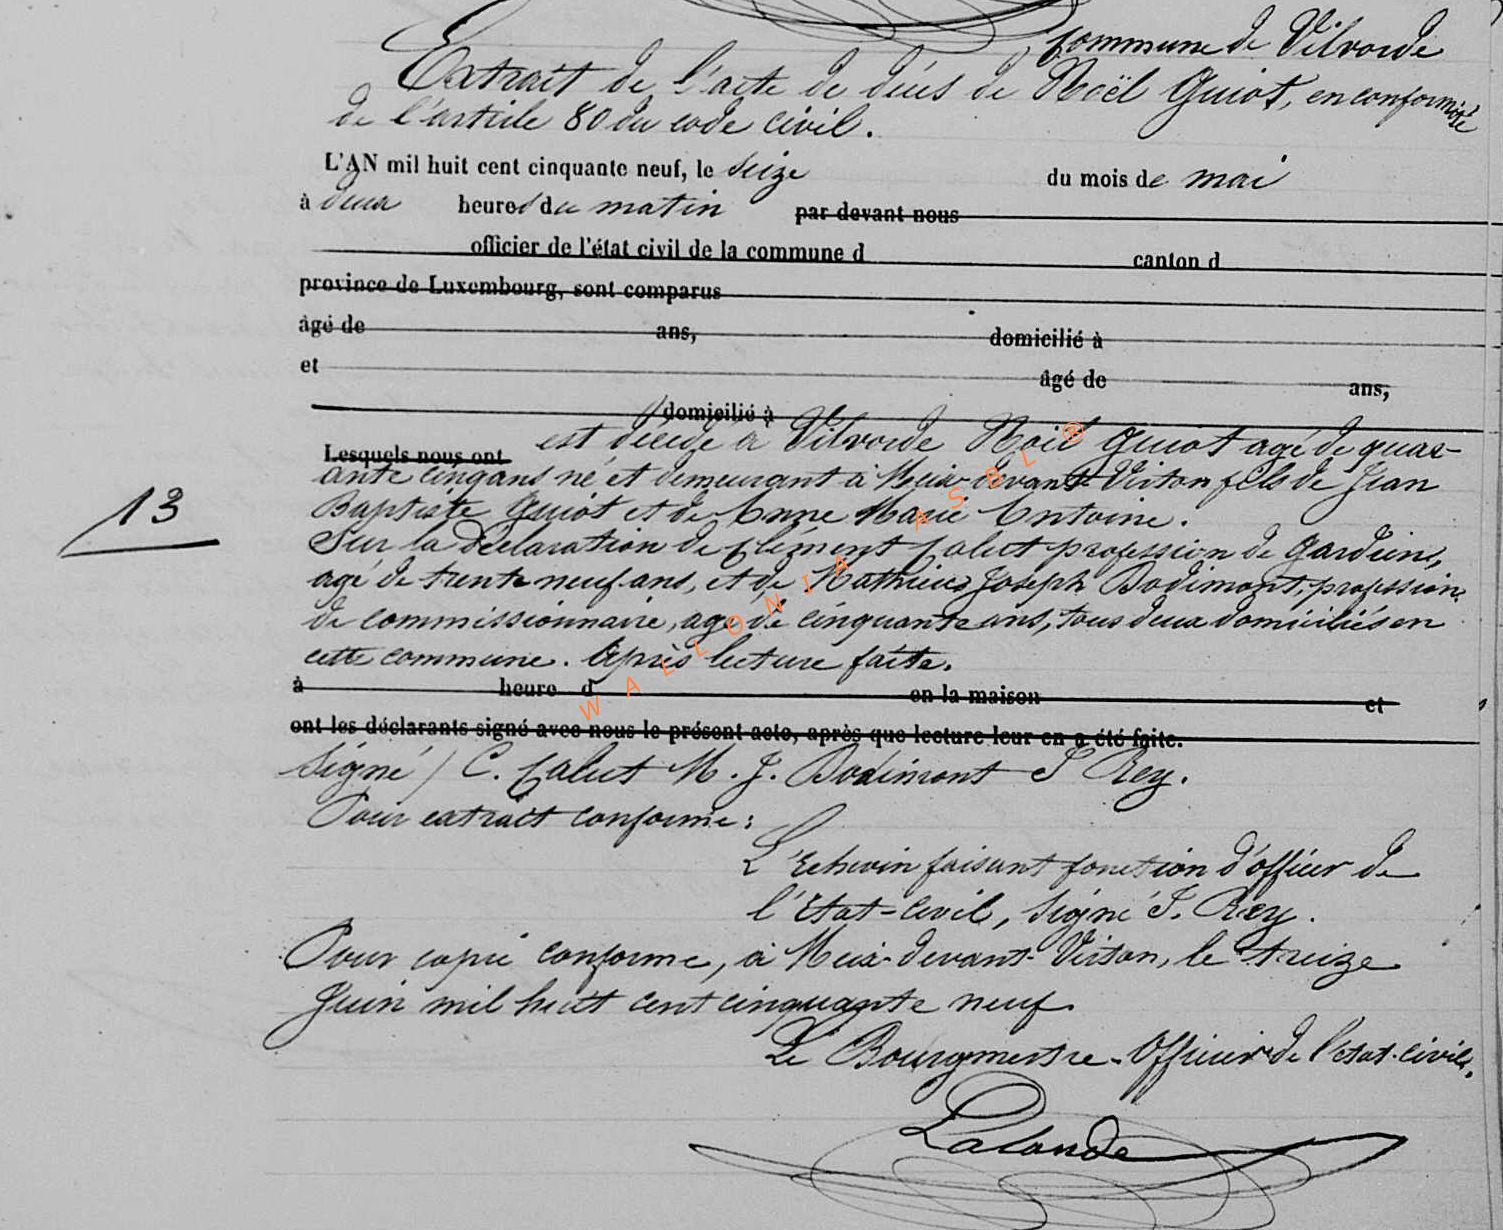 commune de Vilvorde
Extrait de l'acte de décès de Noël Guiot, en conformité
de l'article 80 du code civil.
L'AN mil huit cent cinquante neuf, le seize du mois de mai
à deux heures du matin par devant nous
officier de l'état civil de la commune d canton d
province de Luxembourg, sont comparus
âgé de ans, domicilié à
et âgé de ans,
domicilié à
est décédé à Vilvorde Noël Guiot agé de quar-
Lesquels nous ont
ante cinq ans né et demeurant à Meix-devant-Virton fils de Jean
Baptiste Guiot et de Anne Marie Antoine.
13
Sur la déclaration de Clément Calut profession de gardiens,
agé de trente neuf ans, et de Mathieu Joseph Bodimont, profession
de commissionnaire, agé de cinquante ans, tous deux domiciliés en
cette commune. Après lecture faite.
à heure d en la maison et
ont les déclarants signé avec nous le présent acte, après que lecture leur en a été faite.
Signé / C. Calut M. J. Bodimont Rey.
Pour extrait conforme:
L'Echevin faisant fonction d'officier de
l'Etat-civil, signé Rey.
Pour copie conforme, à Meix-devant-Virton, le treize
Juin mil huit cent cinquante neuf.
Le Bourgmestre-Officier de l'état-civil.
Lalande
WALLONIA ASBL ®